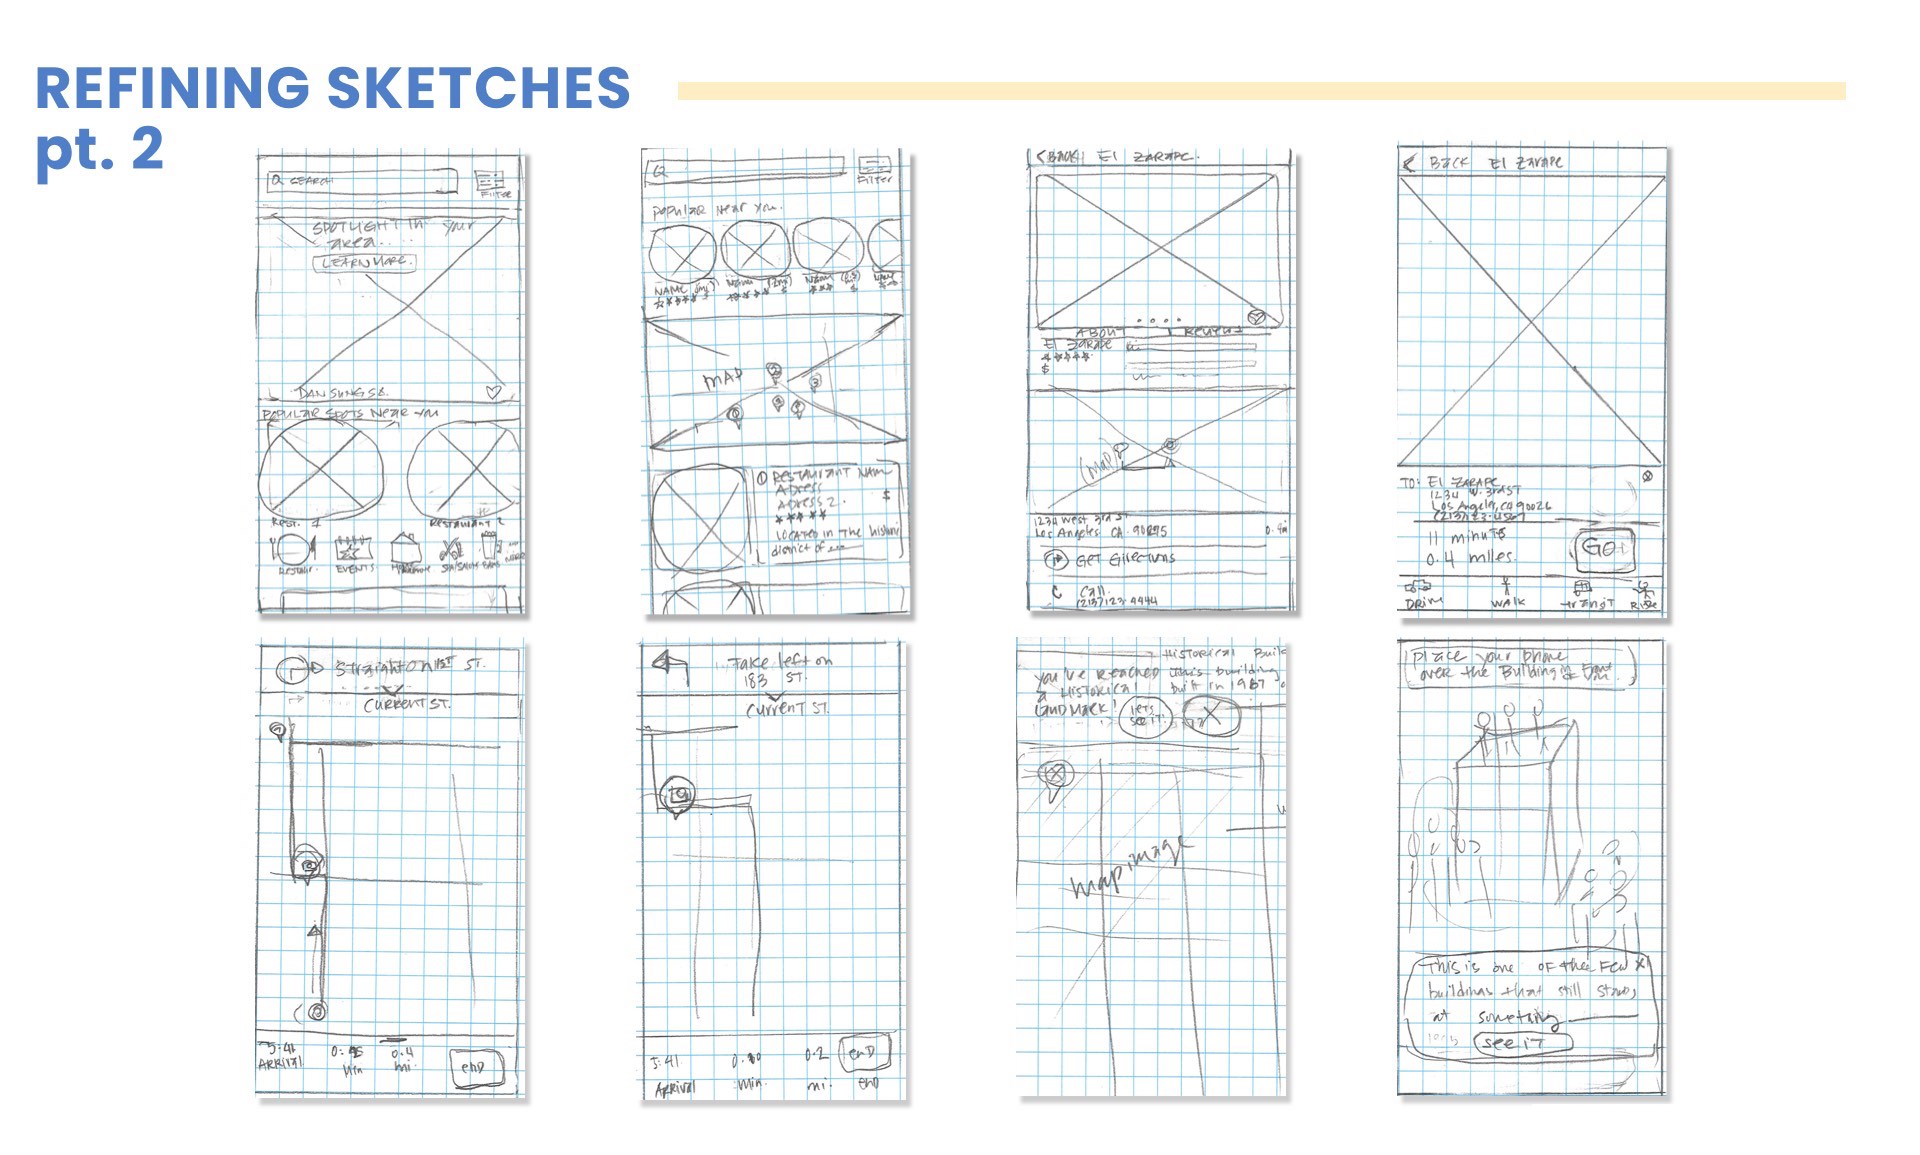 REFINING SKETCHES
pt. 2
Q SEARCH
Filter
SPOTLIGHT IN your
area...
LEARN MORE.
DAN SUNG SA.
POPULAR SPOTS Near you
REST. 1
RESTAURANT 2
RESTAUR.
EVENTS
BARS
Filter
POPULAR Near you.
NAME
NAME
NAME
NAME
$
$
$
MAP
① RESTAURANT NAME
ADress
ADress 2.
$
LOCATED in The histori
district of
< BACK El ZARAPE.
ABOUT
Reviews
El ZARAPE
$
(map)
1234 West 3rd St
Los Angeles CA. 90275
GET Directions
Call.
(213)123-4444
< BACK El ZARAPE
TO: El ZARAPE
1234 W. 3rd ST
Los Angeles, CA 90026
11 minutes
0.4 miles.
GO
DRIVE
WALK
TranSiT
Ride
Straight on 1ST ST.
CURRENT ST.
5:41
ARRIVAL
Min
0.4
mi.
enD
Take left on
183 ST.
Current ST.
5:41
Arrival
Min.
0.2
mi.
enD
enD
HISTORICAL Buil
you've REACHED
a HISTORICAL
LANDMARK!
this building
built in 1987
lets
see it!
map image
Place your phone
over the Building in Front
of You.
This is one of thee Few X
buildings that still stands
at something
see iT